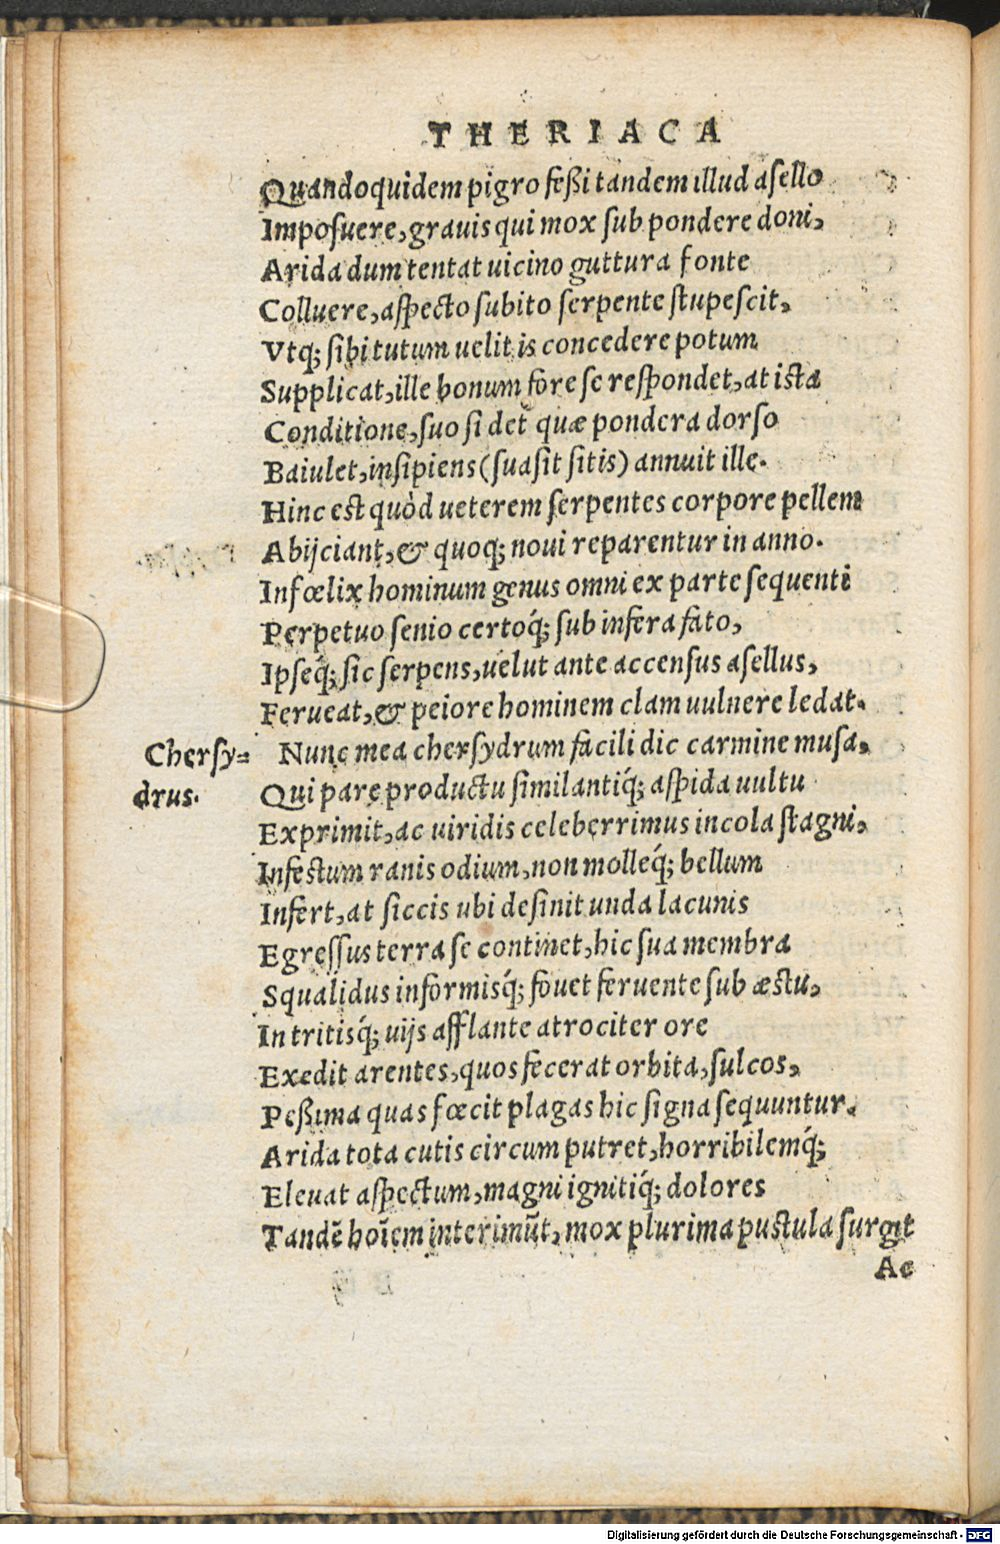 THERIACA
Quandoquidem pigro feßi tandem illud asello
Imposuere, grauis qui mox sub pondere doni,
Arida dum tentat uicino guttura fonte
Colluere, aspecto subito serpente stupescit,
Vtq; sibi tutum uelit is concedere potum
Supplicat, ille bonum fore se respondet, at ista
Conditione, suo si det quæ pondera dorso
Baiulet, insipiens (suasit sitis) annuit ille.
Hinc est quòd ueterem serpentes corpore pellem
Abijciant, & quoq; noui reparentur in anno.
Infœlix hominum genus omni ex parte sequenti
Perpetuo senio certoq́; sub infera fato,
Ipseq́; sic serpens, uelut ante accensus asellus,
Ferueat, & peiore hominem clam uulnere ledat.
Chersy=
drus.
Nunc mea chersydrum facili dic carmine musa,
Qui pare productu similantiq́; aspida uultu
Exprimit, ac uiridis celeberrimus incola stagni,
Infestum ranis odium, non molleq́; bellum
Infert, at siccis ubi desinit unda lacunis
Egressus terra se continet, hic sua membra
Squalidus informisq́; fouet feruente sub æstu,
In tritisq́; uijs afflante atrociter ore
Exedit arentes, quos fecerat orbita, sulcos,
Peßima quas fœcit plagas hic signa sequuntur.
Arida tota cutis circum putret, horribilemq́;
Eleuat aspectum, magni ignitiq́; dolores
Tandē hoīem interimūt, mox plurima pustula surgit
Ac
Digitalisierung gefördert durch die Deutsche Forschungsgemeinschaft - DFG